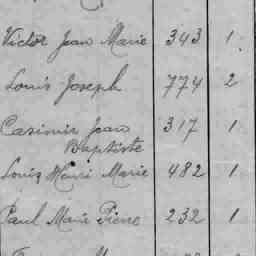 Victor Jean Marie 343 1
Louis Joseph 774 2
Casimir Jean 317 1
Baptiste
Louis Henri Marie 482 1
Paul Marie Pierre 232 1